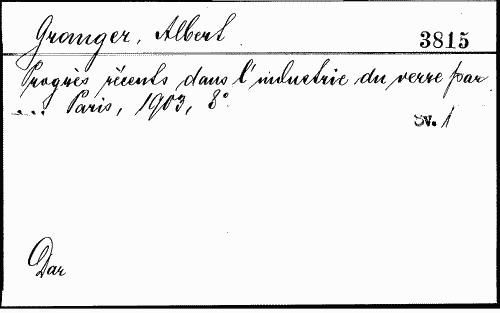 Granger, Albert
3815
Progrès récents dans l'industrie du verre par
... Paris, 1903, 8°.
Sv. 1
Dar